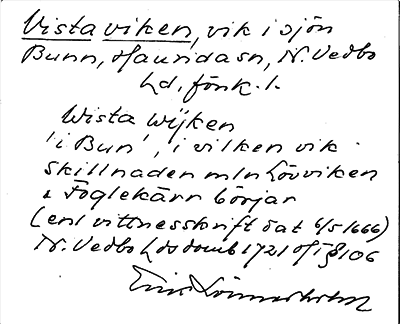 Vistaviken, vik i sjön
Bunn, Hauridasn, N. Vedbo
hd, Jönk. l.
Wista Wijken
'i Bun', i vilken vik
skillnaden mln Lövviken
& Foglekärr börjar
(enl vittnesskrift dat 6/5 1666)
N. Vedbo hds domb 1721 § 106